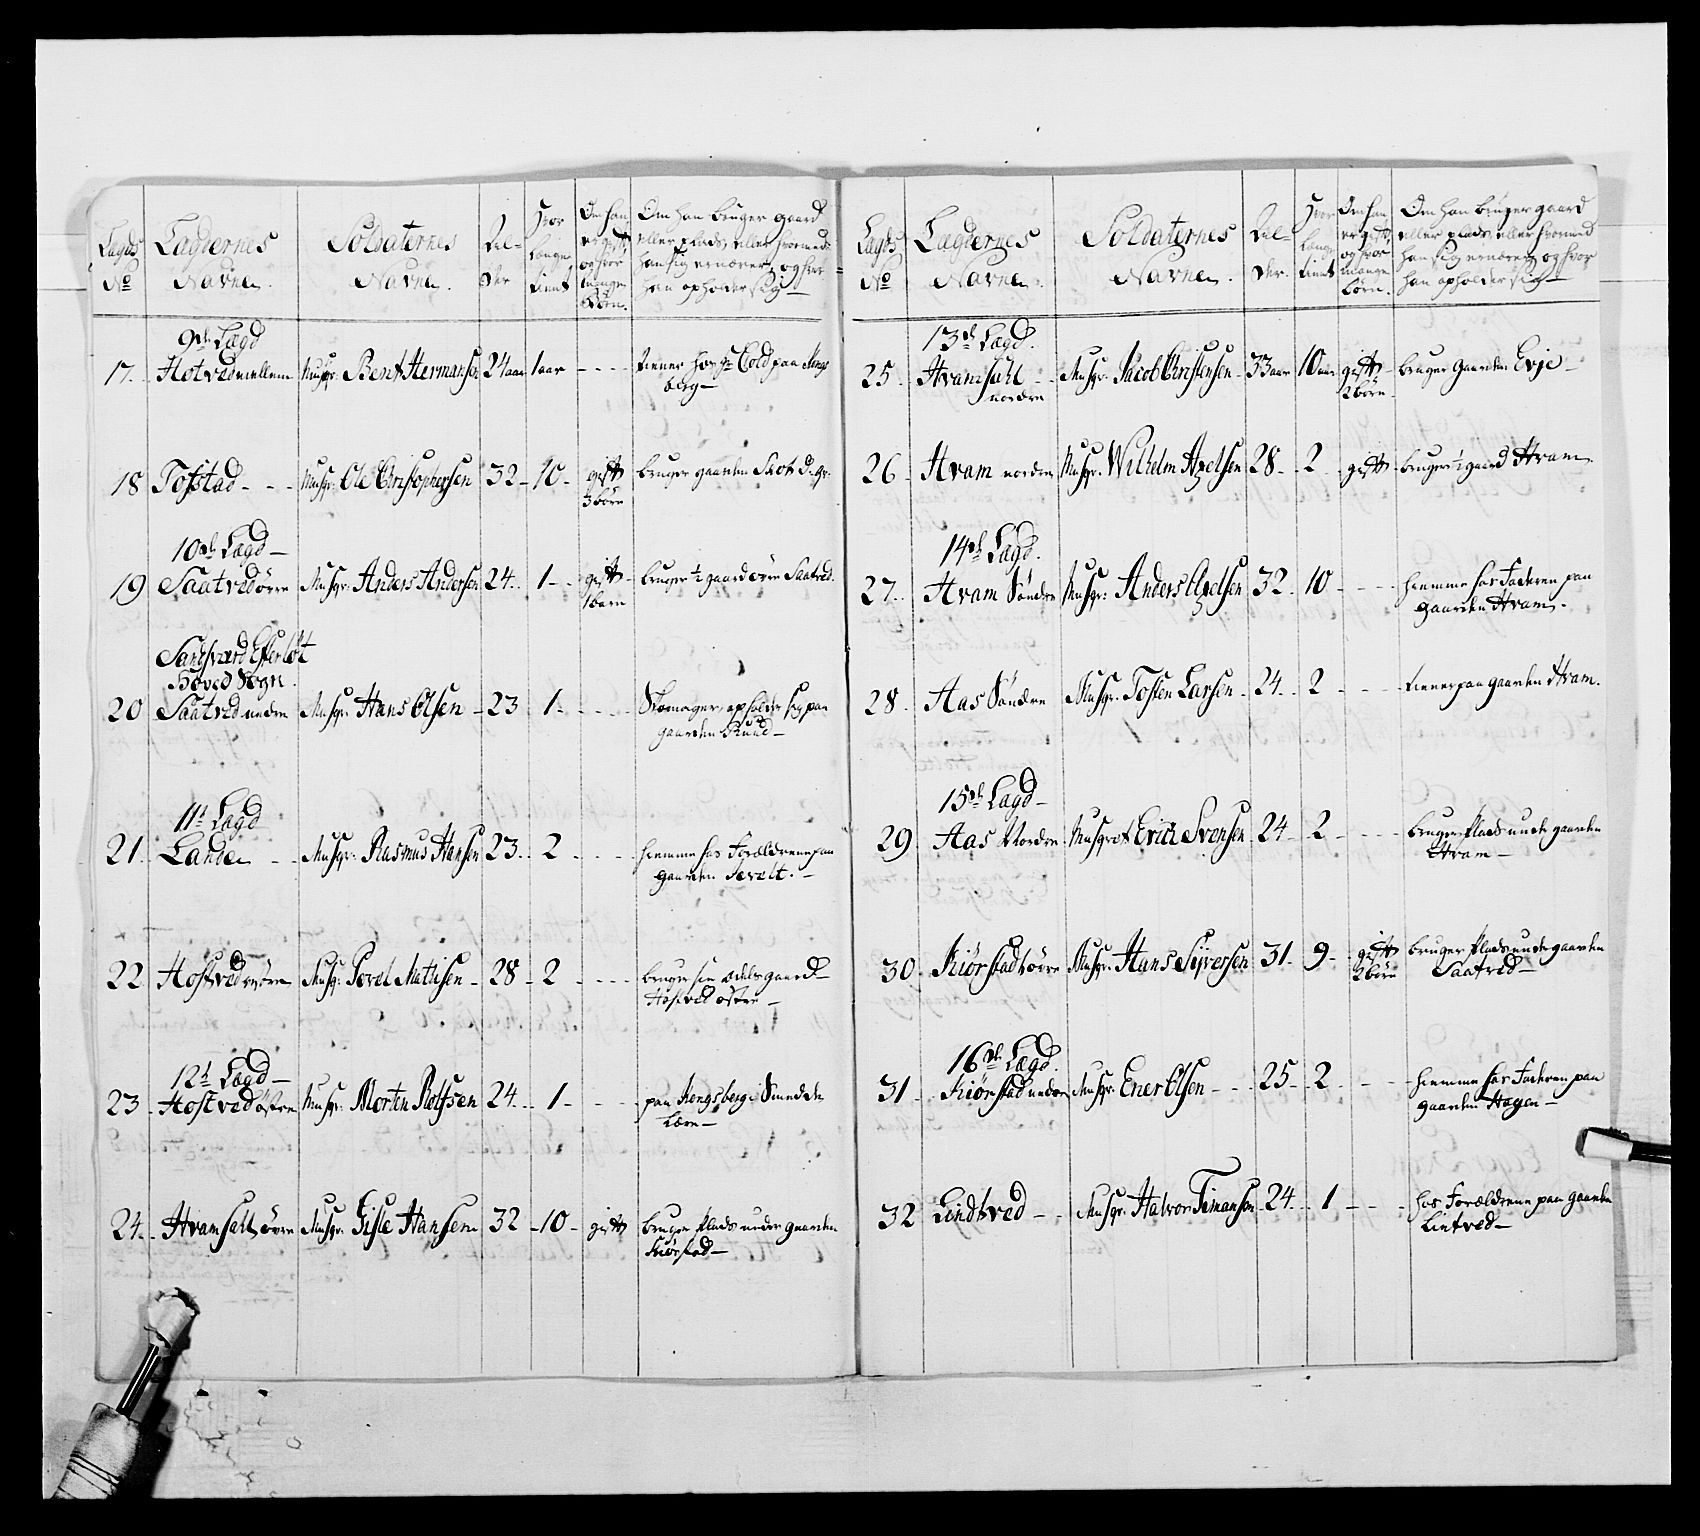 Lægds No | Lægdernes Navne. | Soldaternes Navne. | Al- der | Hvor længe tient | Om han er gift, og hvor mange Børn. | Om han bruger gaard eller plads, eller hvormed han sig ernærer, og hvor han opholder sig —
9de Lægd
17. Hotved mellem | Musqr. Bent Hermansen | 24 aar | 1 aar | - - - - | tiener hos Hr Cold paa Kongs
berg —
18 Tofstad - - - | Musqr. Ole Christophersen | 32 - | 10 - | gift
3 børn | bruger gaarden
10de Lægd —
19 Saatved øvre | Musqr. Anders Andersen | 24. | 1 - - | gift -
1 barn | bruger ½ gaard øvre Saatved.
Sandsværd Efterløt
Hoved Sogn.
20 Saatved nedre | Musqr. Hans Olsen - | 23 | 1 - | - - - - | Skomager, opholder sig paa
gaarden Ruud —
11te Lægd
21. Lande - - | Musqr. Rasmus Hansen | 23. | 2 | - - - - | hiemme hos Forældrene paa
gaarden
22 Hostved øvre | Musqr. Povel Mathisen - | 28 - | 2 | - - - - | bruger sin odels gaard -
Hostved østre —
12te Lægd —
23 Hostved østre | Musqr. Morten Rolfsen | 24. | 1 - | - - - | paa Kongsberg i Smedde
Lære —
24. Hvamsahl øvre | Musqr. Gisle Hansen | 32 | 10 - | gift | bruger Plads under gaarden
Kiørstad —
Lægds No | Lægdernes Navne. | Soldaternes Navne. | Al- der. | Hvor længe tient | Om han er gift, og hvor mange børn. | Om han bruger gaard eller plads, eller hvormed han sig ernærer, og hvor han opholder sig —
13de Lægd.
25. Hvamsahl
nordre | Musqr. Jacob Christensen | 33 aar | 10 aar | gift
2 børn. | bruger gaarden Evje —
26. Hvam nordre | Musqr. Wilhelm Axelsen | 28 - | 2 | gift | bruger ½ gaard Hvam.
14de Lægd.
27. Hvam Søndre | Musqr. Anders Axelsen | 32. | 10 | - - - - | hiemme hos Faderen paa
gaarden Hvam.
28. Aas Søndre | Musqr. Tosten Larsen. | 24. | 2 | - - - | tiener paa gaarden Hvam.
15de Lægd —
29. Aas Nordre | Musqvet Erich Svensen | 24 - | 2 | - - - | bruger Plads under gaarden
Hvam —
30. Kiørstad øvre | Musqr. Hans Syversen | 31 - | 9 - | gift
2 børn | bruger Plads under gaarden
Saatved —
16de Lægd.
31 Kiørstad nedre | Musqr. Ener Olsen - - | 25 - | 2 | - - - | hiemme hos Faderen paa
gaarden Hagen —
32 Lindtved - - | Musqr. Halvor Timansen | 24. | 1 | - - - | hos Forældrene paa gaarden
Lintved —